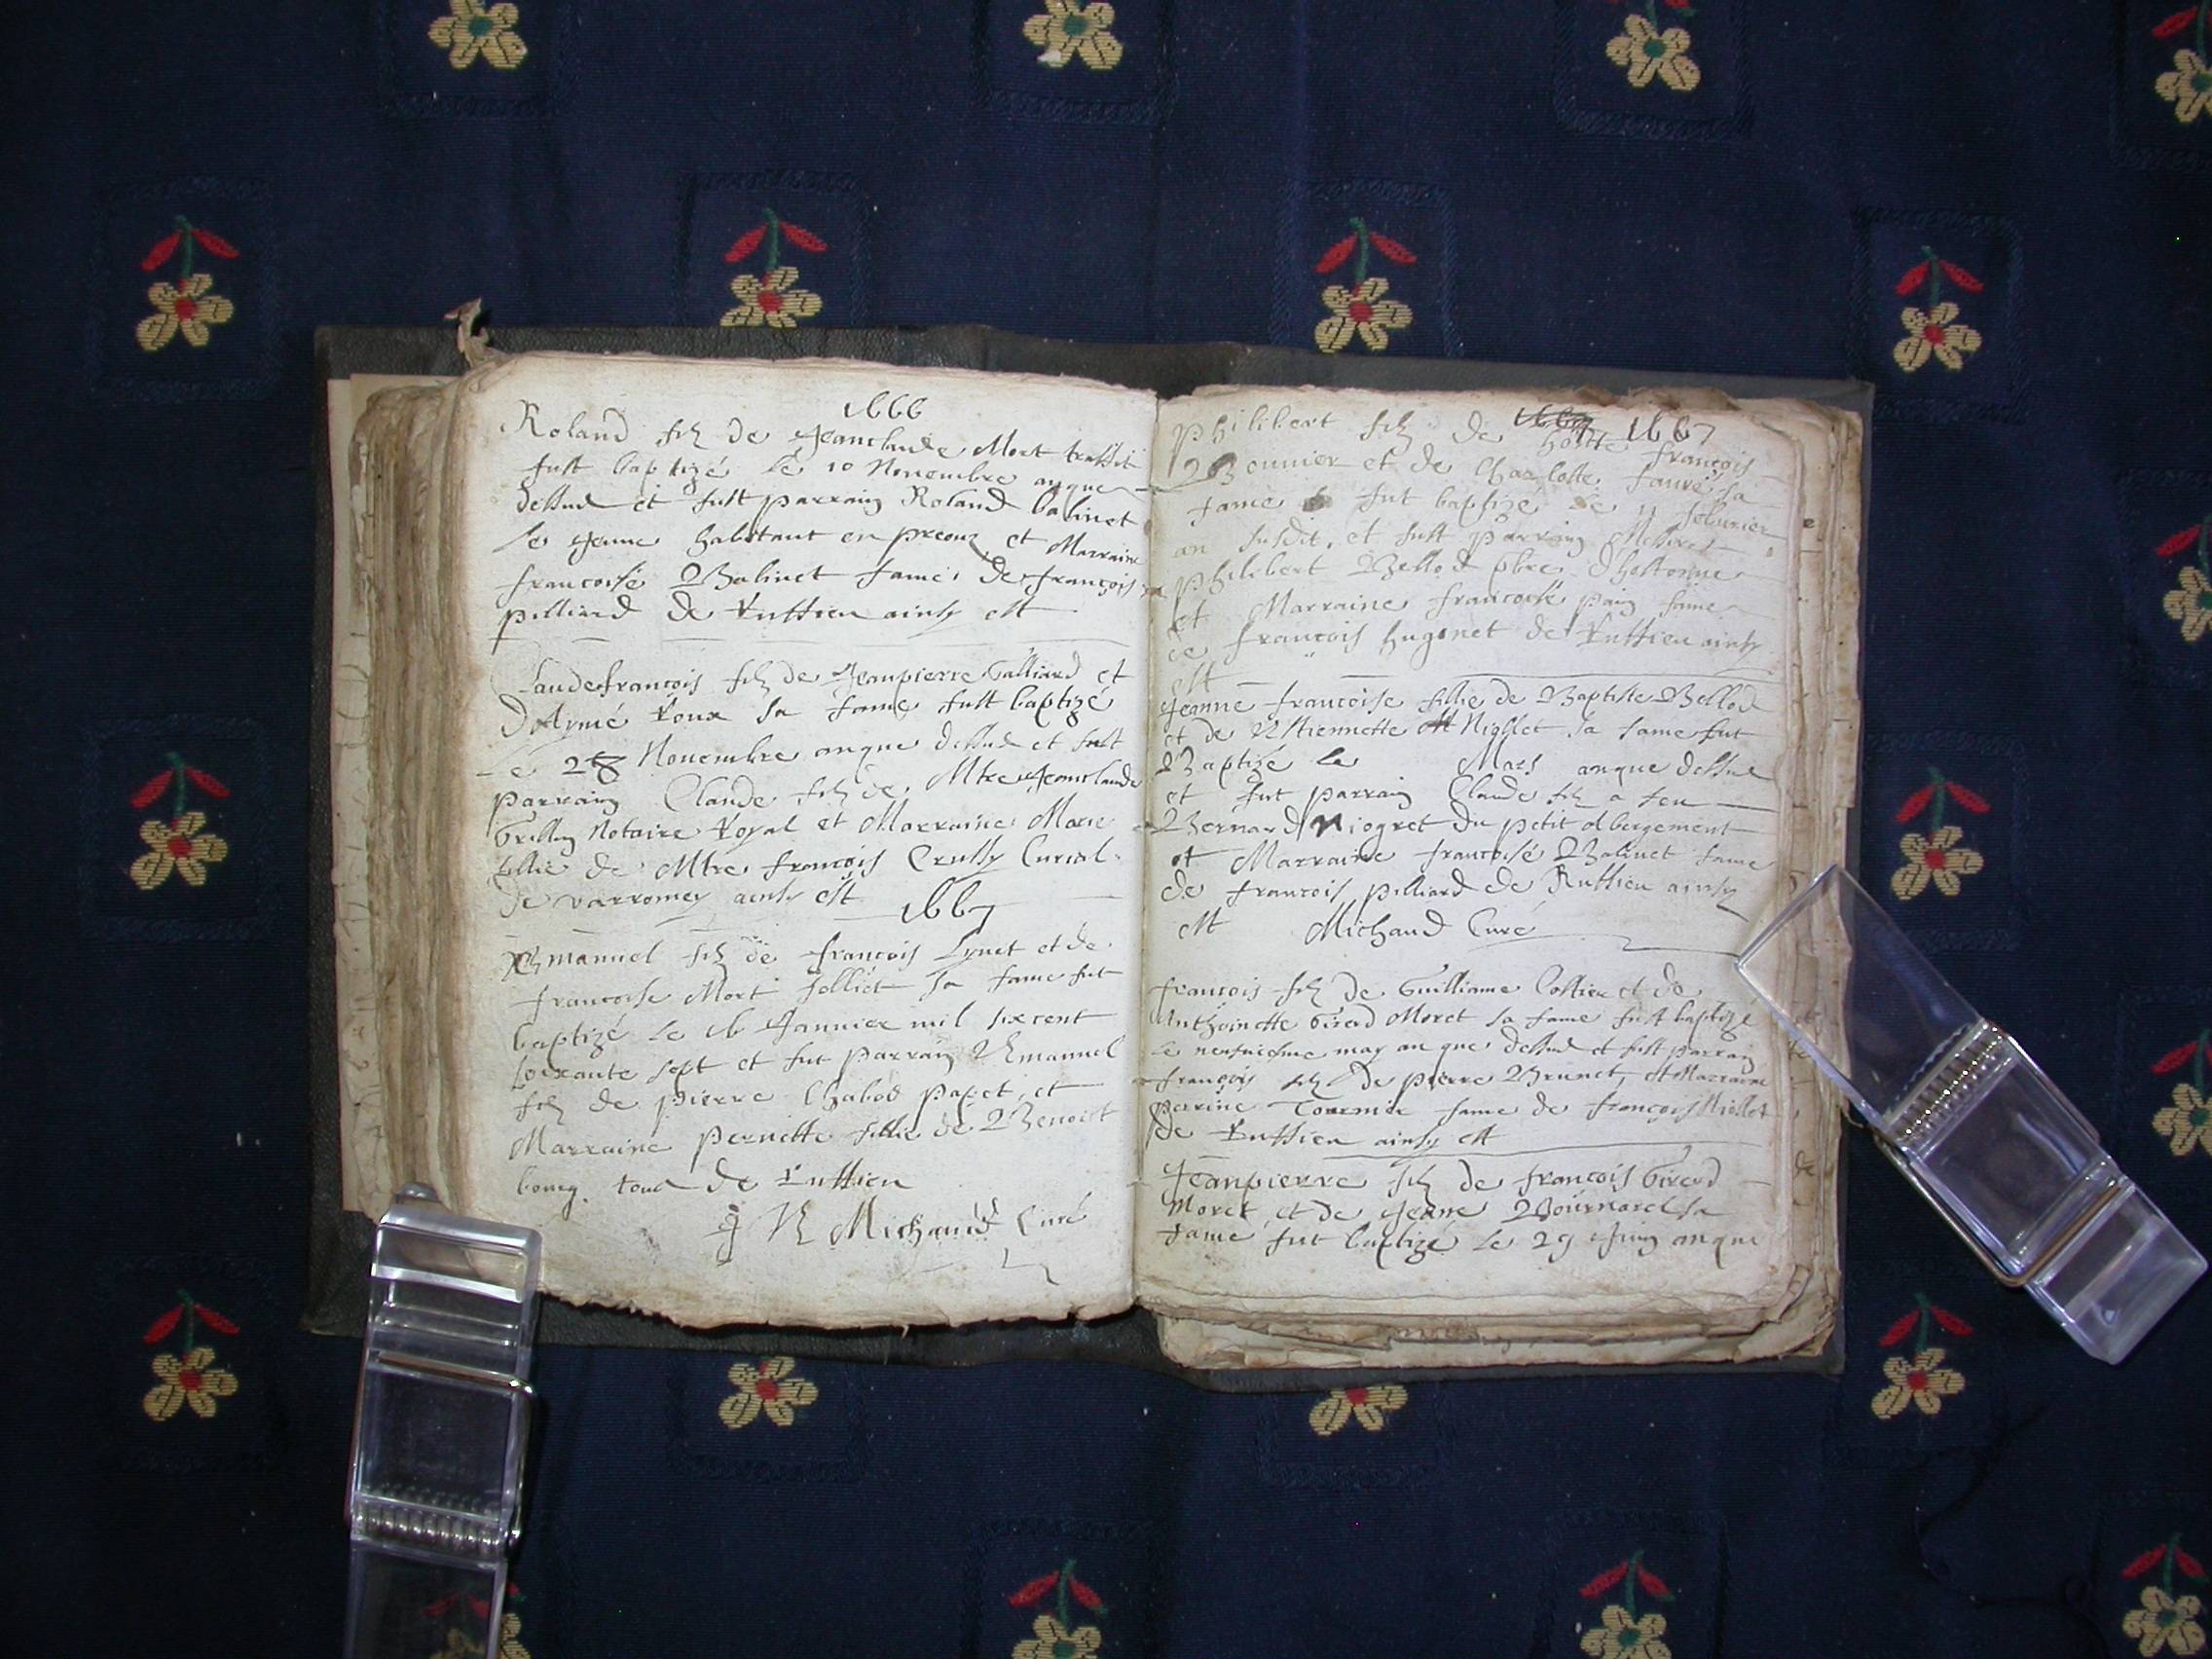 1666
Roland filz de Jeanclaude Mort
fust baptizé le 10 Nouembre anque
dessus et fust parrain Roland balinet
le Jeune habitant en et Marraine
francoise Balinet fame de françois
pilliard de Ruffieu ainsy est
Claudefrançois filz de Jeanpierre Galliard et
D'Aymé Roux sa fame fust baptizé
Le 28 Nouembre anque dessus et fust
parrain Claude filz de Mtre Jeanclaude
Grillon Notaire Royal et Marraine Marie
fillie de Mtre françois Curial
de varromey ainsy est
1667
Emanuel filz de françois Lynet et de
francoise Mort Jolliet sa fame fut
baptizé le 16 Januier mil six cent
soixante sept et fut parrain Emanuel
filz de pierre Chabod papet, et
Marraine pernette fillie de Benoist
bourg. tous de Ruffieu
Michaud Curé
1667
philibert filz de françois
Bonnier et de Charlotte fauré sa
fame fut baptizé le 11 feburier
an susdit, et fust parrain Messire
philibert Bellod pbre d'hostonne
et Marraine francoise pain fame
de françois hugonet de Ruffieu ainsy
est
Jeanne francoise fillie de Baptiste Bellod
et de Estiennette Niollet sa fame fut
Baptizé le Mars anque dessus
et fut parrain Claude filz a feu
Bernard Niogret du petit abergement
et Marraine francoisé Balinet fame
de françois pilliard de Ruffieu ainsy
est Michaud Curé
françois filz de Guilliame Costieu et de
Anthoinette Girod Moret sa fame fust baptizé
le neufuiesme may an que dessus et fust parrain
françois filz de pierre Brunet, et Marraine
perrine Tournier fame de françois Niollet
de Ruffieu ainsy est
Jeanpierre filz de françois Girod
Moret et de Jeane sa
fame fut baptizé le 29 Juin anque